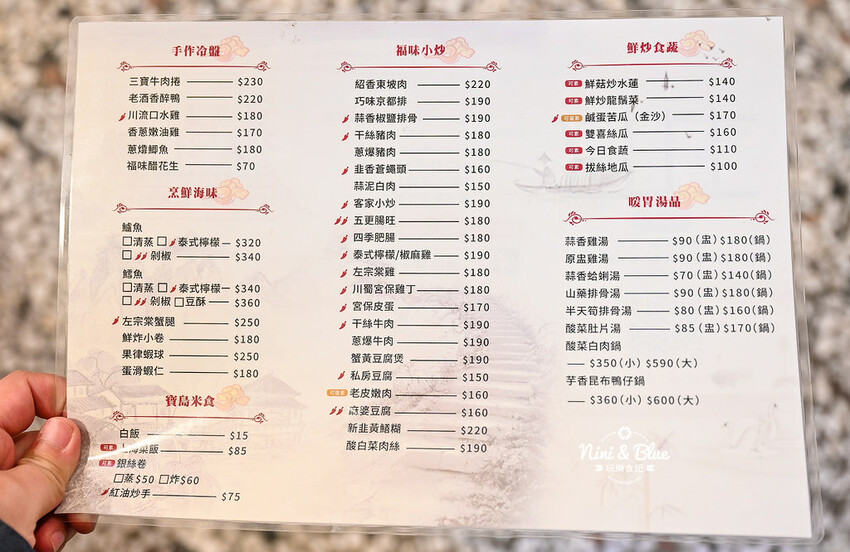 手作冷盤
三寶牛肉捲 $230
老酒香醉鴨 $220
川流口水雞 $180
香蔥嫩油雞 $170
蔥燒鯽魚 $180
福味醋花生 $70
烹鮮海味
鱸魚
□清蒸 □泰式檸檬 $320
□剁椒 $340
鱈魚
□清蒸 □泰式檸檬 $340
□剁椒 □豆酥 $360
左宗棠蟹腿 $250
鮮炸小卷 $180
果律蝦球 $250
蛋滑蝦仁 $180
寶島米食
白飯 $15
可素 上海菜飯 $85
可素 銀絲卷
□蒸$50 □炸$60
紅油炒手 $75
福味小炒
紹香東坡肉 $220
巧味京都排 $190
蒜香椒鹽排骨 $190
干絲豬肉 $180
蔥爆豬肉 $180
韭香蒼蠅頭 $160
蒜泥白肉 $150
客家小炒 $190
五更腸旺 $180
四季肥腸 $180
泰式檸檬/椒麻雞 $190
左宗棠雞 $180
川蜀宮保雞丁 $180
宮保皮蛋 $170
干絲牛肉 $190
蔥爆牛肉 $190
蟹黃豆腐煲 $190
私房豆腐 $150
可蛋素 老皮嫩肉 $160
麻婆豆腐 $160
新韭黃鱔糊 $220
酸白菜肉絲 $190
鮮炒食蔬
可素 鮮菇炒水蓮 $140
可素 鮮炒龍鬚菜 $140
可蛋素 鹹蛋苦瓜（金沙） $170
可素 雙喜絲瓜 $160
可素 今日食蔬 $110
可素 拔絲地瓜 $100
暖胃湯品
蒜香雞湯 $90(盅) $180(鍋)
原盅雞湯 $90(盅) $180(鍋)
蒜香蛤蜊湯 $70(盅) $140(鍋)
山藥排骨湯 $90(盅) $180(鍋)
半天筍排骨湯 $80(盅) $160(鍋)
酸菜肚片湯 $85(盅) $170(鍋)
酸菜白肉鍋
$350(小) $590(大)
芋香昆布鴨仔鍋
$360(小) $600(大)
Nini & Blue
玩樂食記